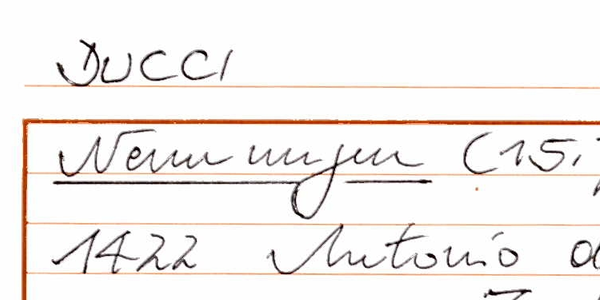 DUCCI
Nennungen (15.
1422 Antonio d